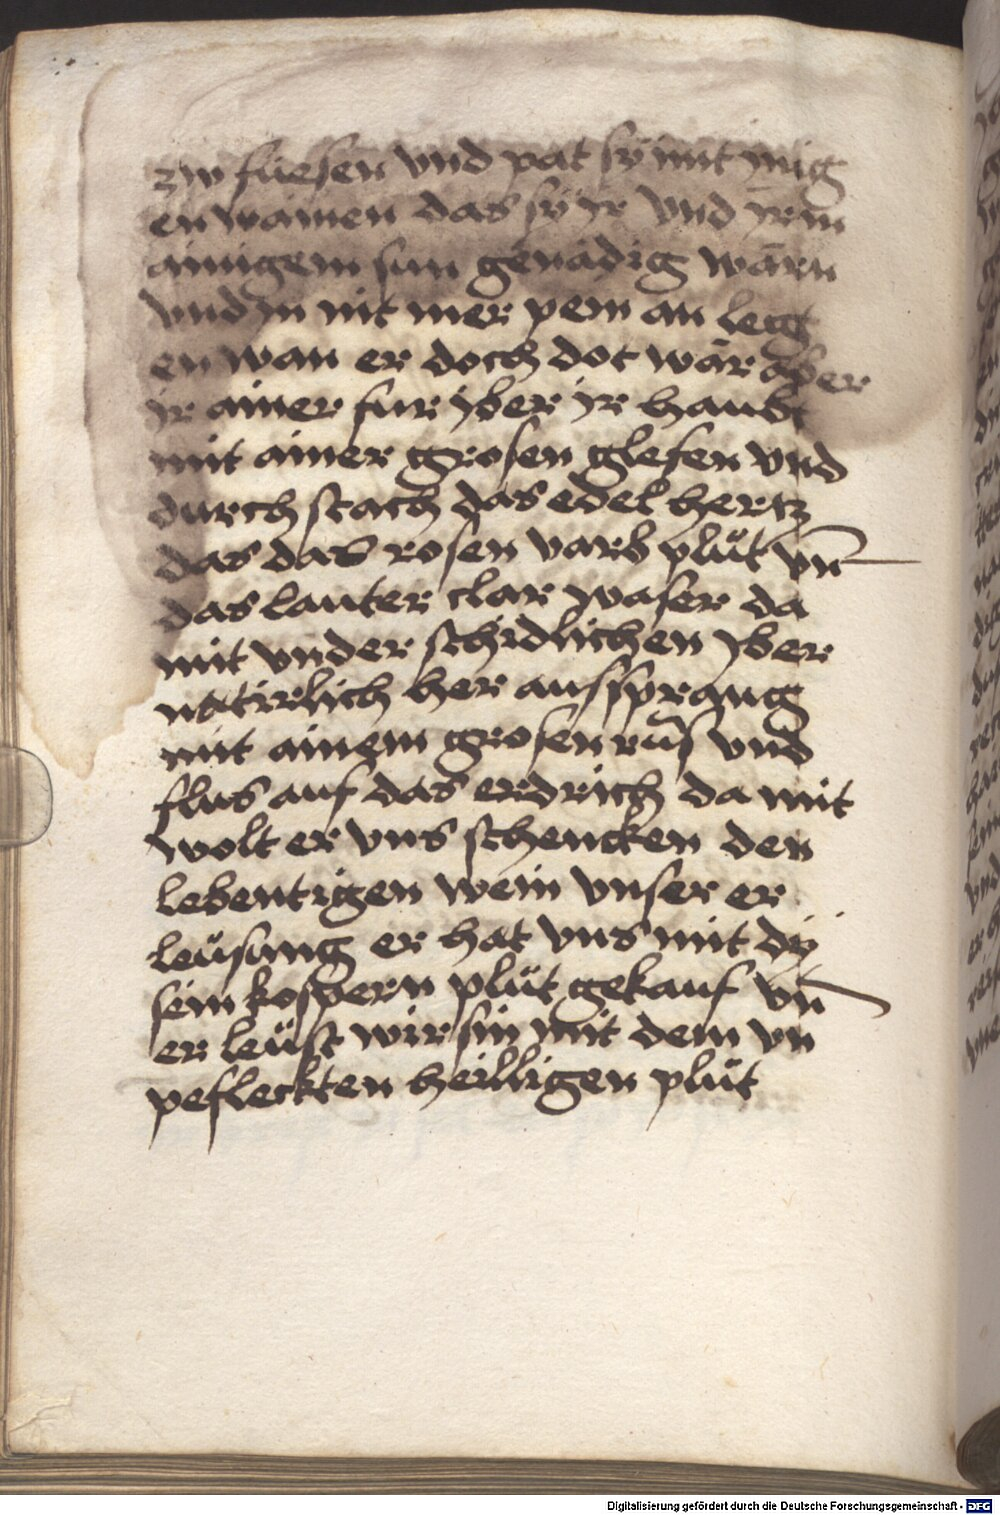 zw füesen vnd pat sÿ mit ynig
en wainen das sÿ ir vnd irm
ainigem sun genädig wärn
vnd in nit mer pein an legt
en wan er doch dot wär aber
ir ainer fur yber ir haubt
mit ainer grosen glefen vnd
durch stach das edel hertz
das das rosen varb plüt vn̄
das lauter clar waser da
mit vnder schidlichen yber
natirrlich her aussprang
mit ainem grosen rüs vnd
flus auf das erdrich da mit
wolt er vns schencken den
lebentigen wein vnser er
leüsung er hat vns mit dÿ
sem kospern plüt gekauf vn̄
er leüst wir sin mit dem vn
pefleckten heilligen plüt
Digitalisierung gefördert durch die Deutsche Forschungsgemeinschaft - DFG